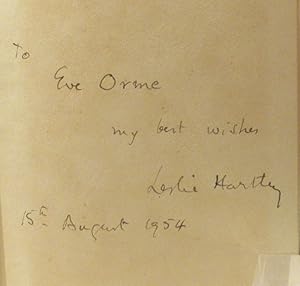 To
Eve Orme
my best wishes
Leslie Hartley
15th August 1954